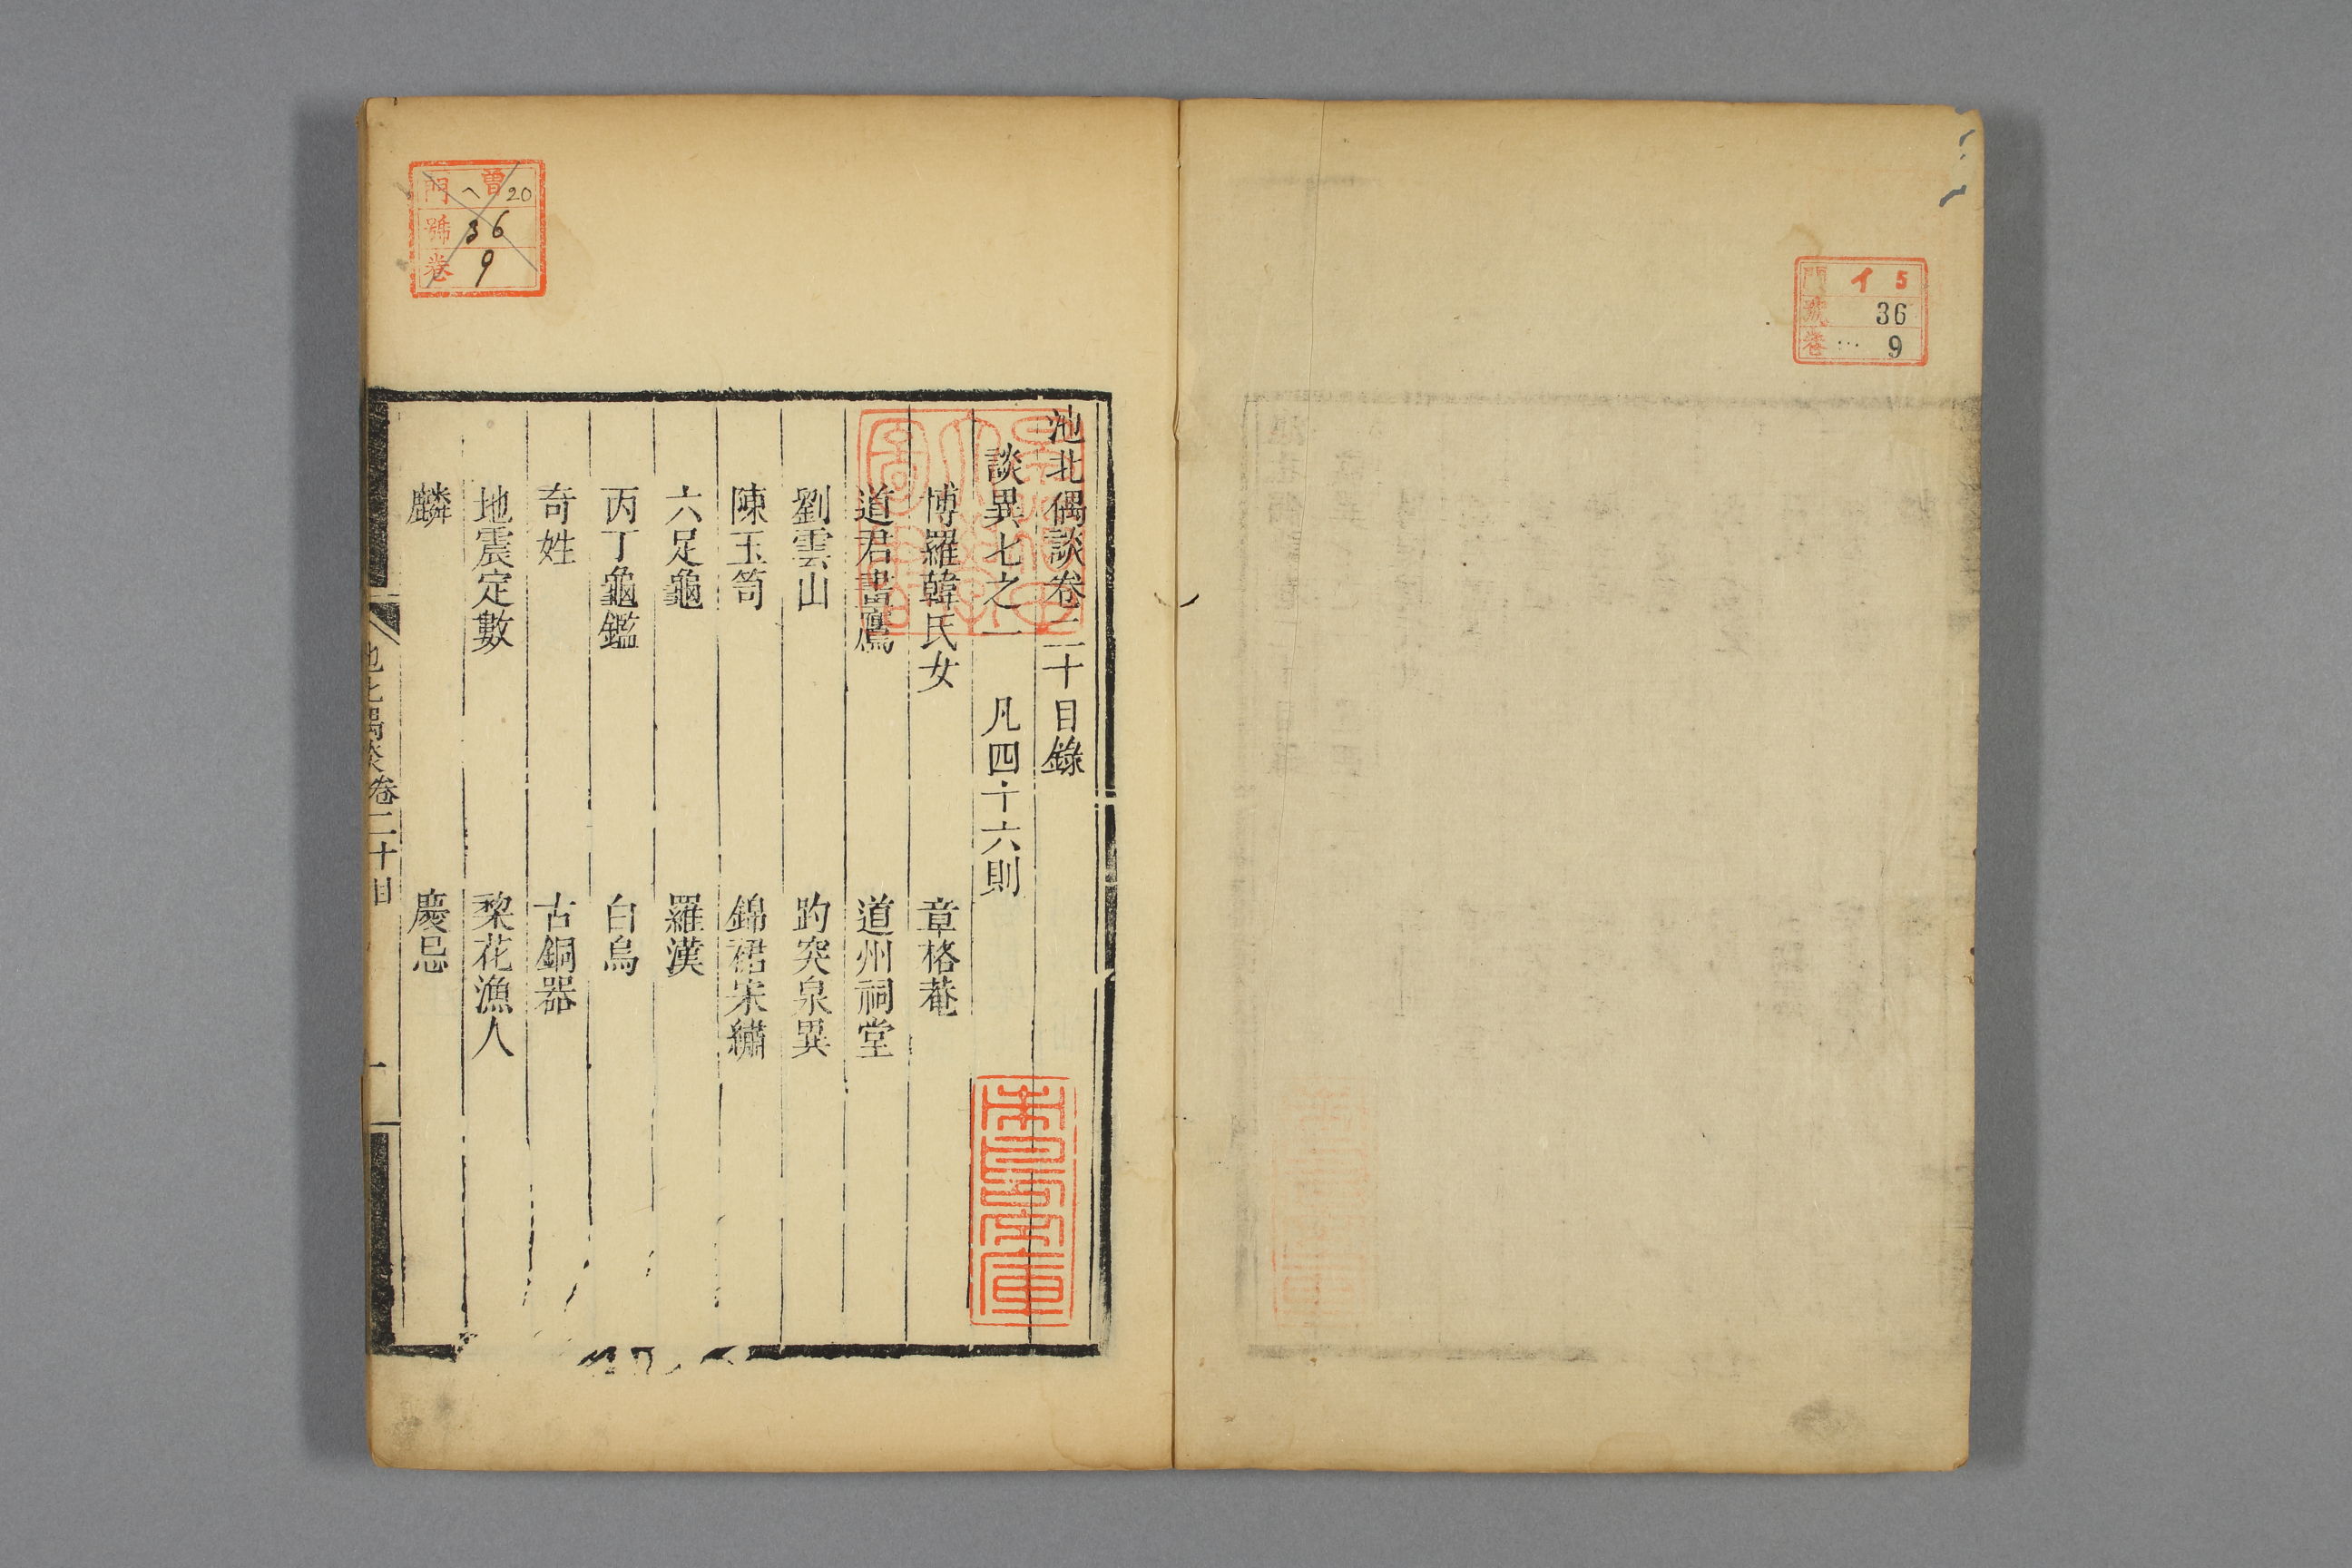 門 イ 5
號 36
卷 9
池北偶談卷二十目錄
談異七之一 凡四十六則
博羅韓氏女 章格菴
道君畫鷹 道州祠堂
劉雲山 趵突泉異
陳玉笥 錦裙宋繡
六足龜 羅漢
丙丁龜鑑 白烏
奇姓 古銅器
地震定數 梨花漁人
麟 慶忌
池北偶談卷二十目 一
曽
門 ヘ 20
號 36
卷 9